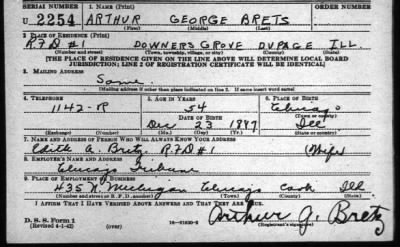 SERIAL NUMBER 1. NAME (Print) ORDER NUMBER
U 2254 ARTHUR GEORGE BRETS
(First) (Middle) (Last)
2. PLACE OF RESIDENCE (Print)
R.F.D #1 DOWNERS GROVE DUPAGE ILL.
(Number and street) (Town, township, village, or city) (County) (State)
[THE PLACE OF RESIDENCE GIVEN ON THE LINE ABOVE WILL DETERMINE LOCAL BOARD
JURISDICTION; LINE 2 OF REGISTRATION CERTIFICATE WILL BE IDENTICAL]
3. MAILING ADDRESS
Same
[Mailing address if other than place indicated on line 2. If same insert word same]
4. TELEPHONE 5. AGE IN YEARS 6. PLACE OF BIRTH
1142-R 54 Chicago
DATE OF BIRTH (Town or county)
Dec 23 1897 Ill
(Exchange) (Number) (Mo.) (Day) (Yr.) (State or country)
7. NAME AND ADDRESS OF PERSON WHO WILL ALWAYS KNOW YOUR ADDRESS
Edith A. Bretz R.F.D #1 (Wife)
8. EMPLOYER'S NAME AND ADDRESS
Chicago Tribune
9. PLACE OF EMPLOYMENT OR BUSINESS
435 N. Michigan Chicago Cook Ill
(Number and street or R. F. D. number) (Town) (County) (State)
I AFFIRM THAT I HAVE VERIFIED ABOVE ANSWERS AND THAT THEY ARE TRUE.
D. S. S. Form 1
(Revised 4-1-42) (over) 16-21630-2 Arthur G. Bretz
(Registrant's signature)